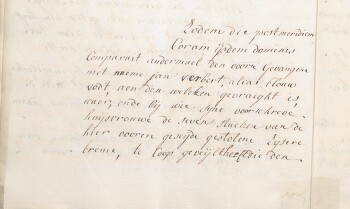 Eodem die post meridiem
Coram ijsdem dominis
Comparuit andermael den voorn Gevangen
met naeme jan verbert, alias blauw
vodt aen den welcken gevraeght is,
waer, ende by wie syne voorschreve
huijsvrouwe de seven stucken van de
hier vooren geseyde gestolene Eysere
te coop geveylt heeft die den